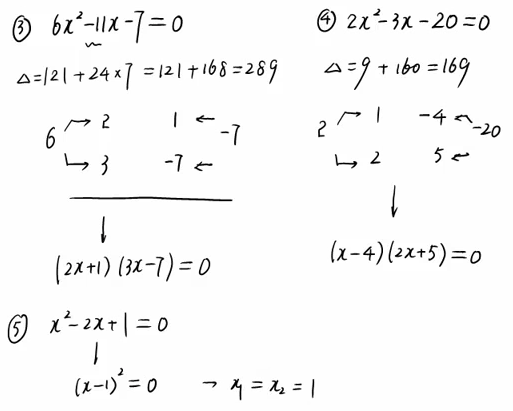 ③ 6x²-11x-7=0
△=121+24×7=121+168=289
6 2 1 -7
3 -7
↓
(2x+1)(3x-7)=0
④ 2x²-3x-20=0
△=9+160=169
2 1 -4 -20
2 5
↓
(x-4)(2x+5)=0
⑤ x²-2x+1=0
↓
(x-1)²=0 → x₁=x₂=1